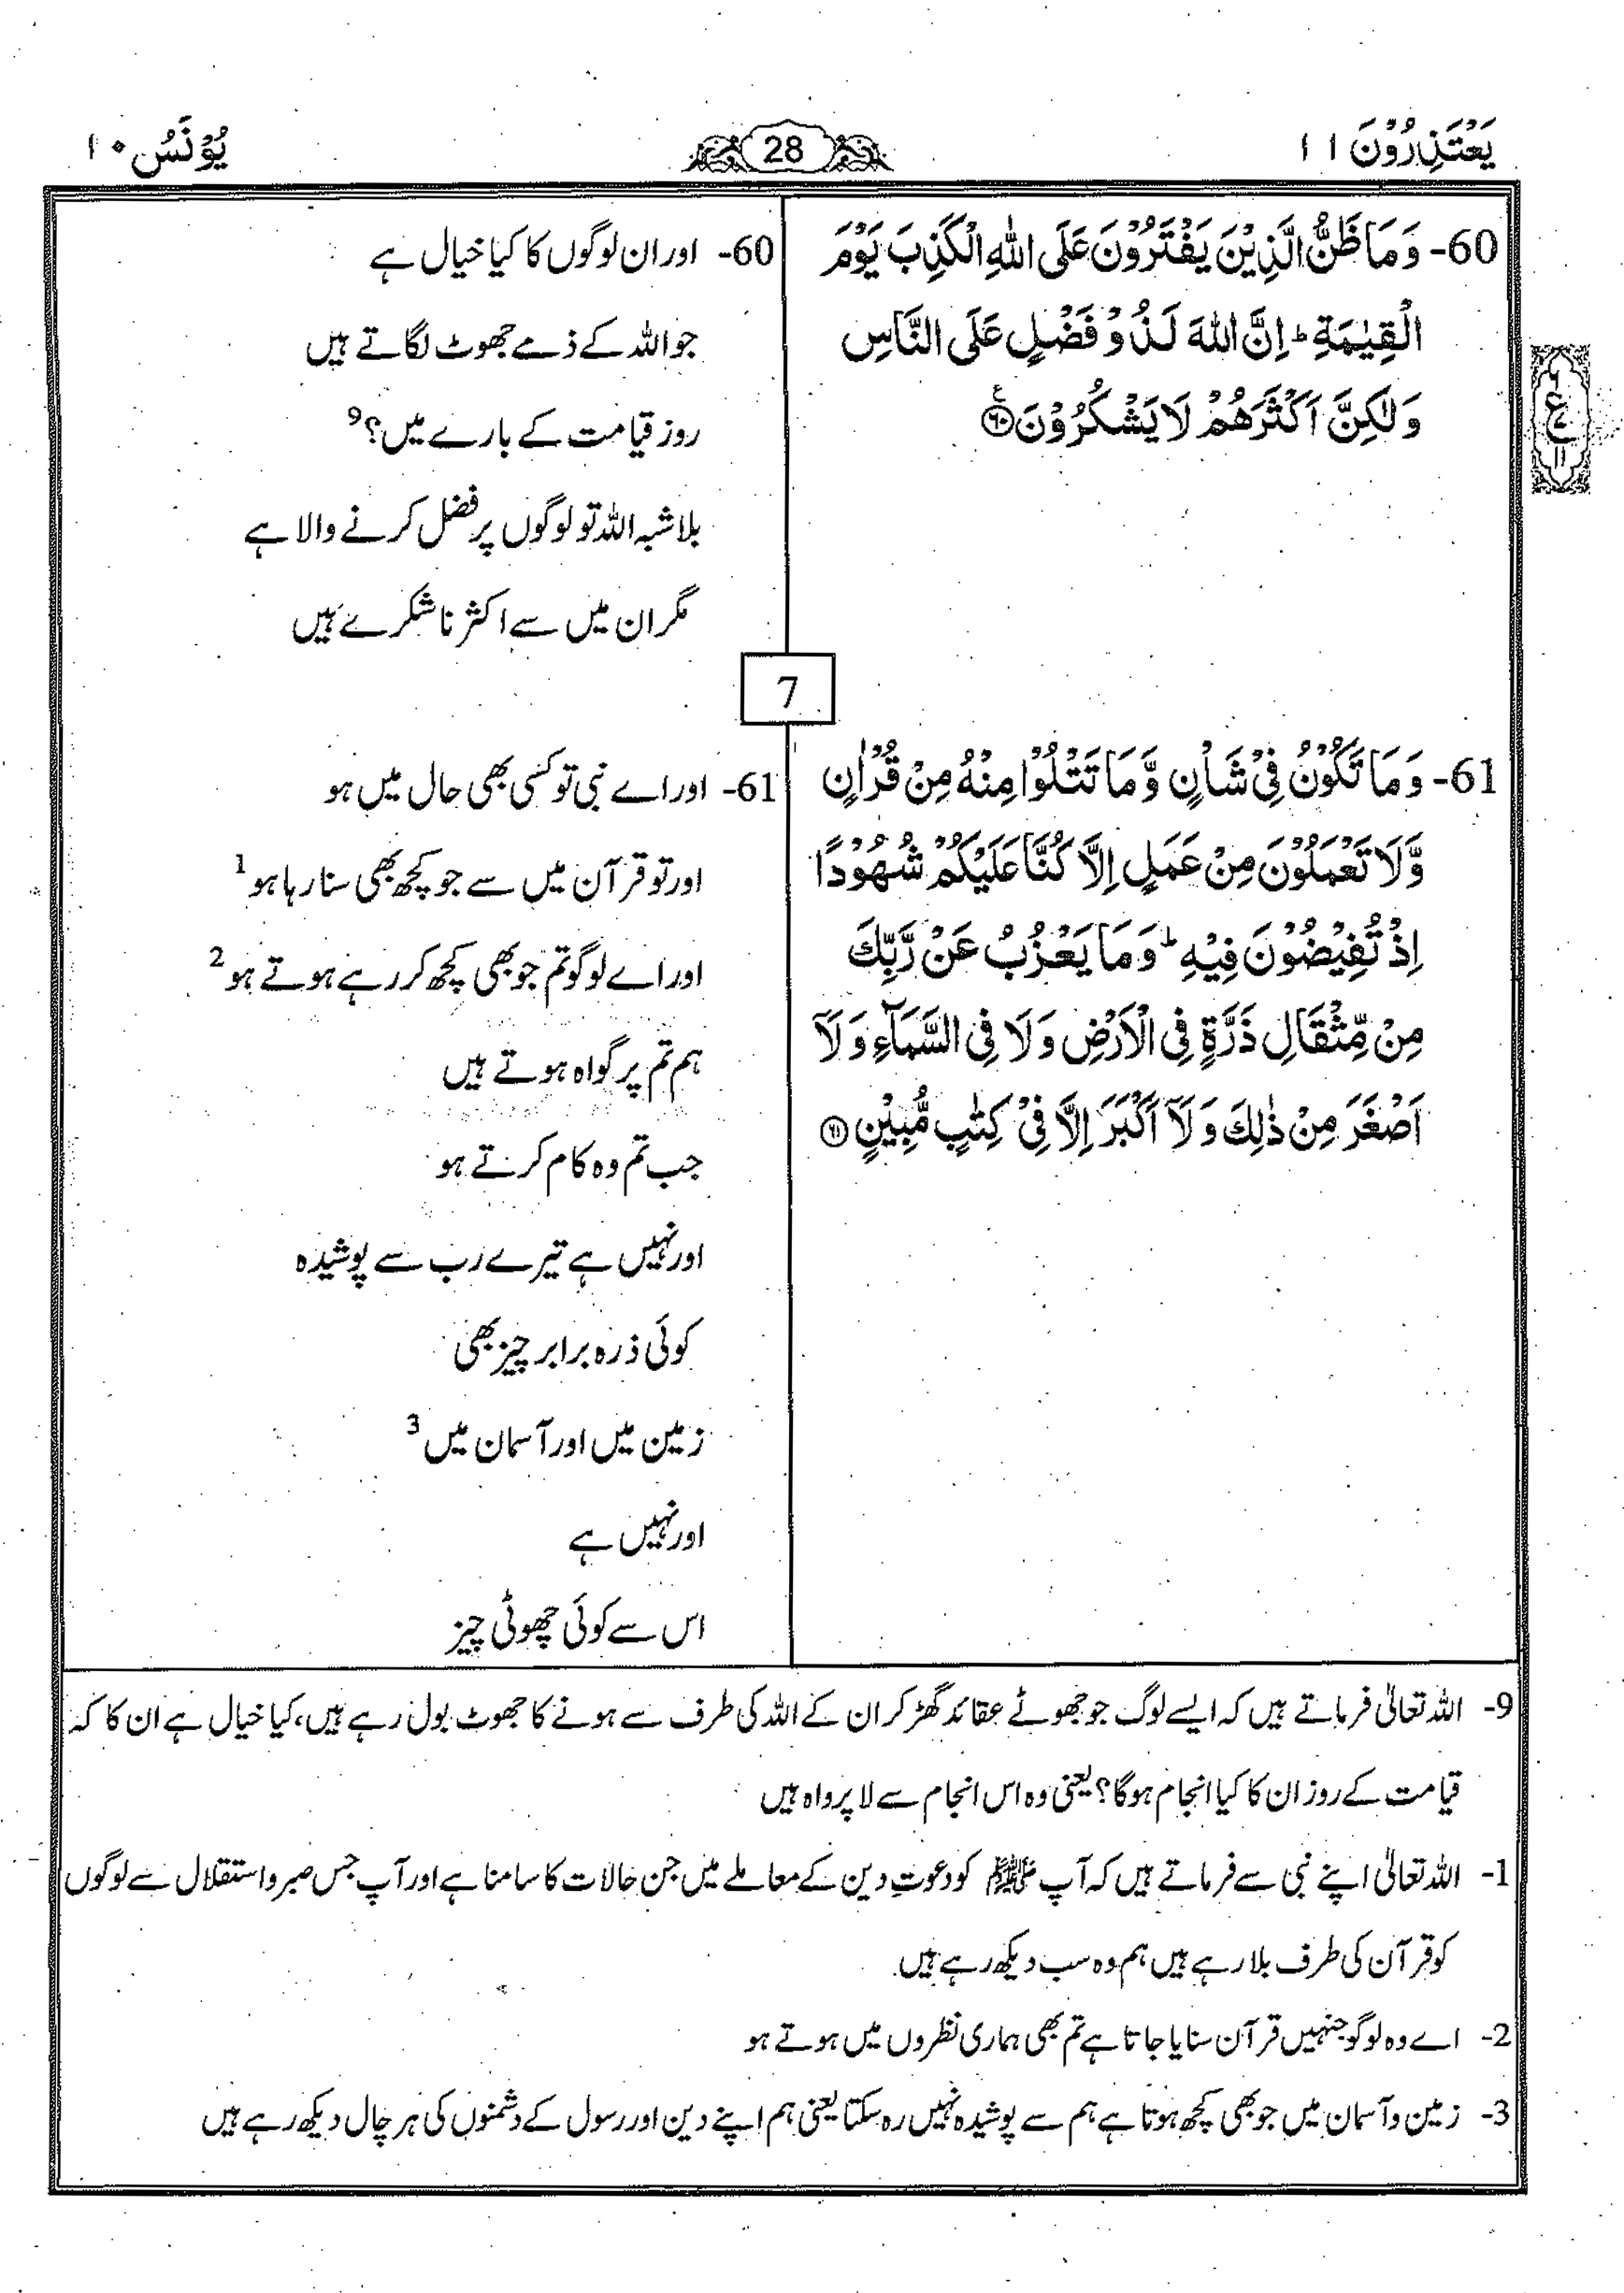 یَعْتَذِرُوْنَ ۱۱
28
یُوْنُسُ ۱۰
60- وَمَا ظَنُّ الَّذِیْنَ یَفْتَرُوْنَ عَلَی اللّٰهِ الْكَذِبَ یَوْمَ
الْقِیٰمَةِ ؕ اِنَّ اللّٰهَ لَذُوْ فَضْلٍ عَلَی النَّاسِ
وَلٰكِنَّ اَكْثَرَهُمْ لَا یَشْكُرُوْنَ ﴿۶۰﴾
ع
۶
ع
۷
۱۱
60- اور ان لوگوں کا کیا خیال ہے
جو اللہ کے ذمے جھوٹ لگاتے ہیں
روز قیامت کے بارے میں؟ 9
بلاشبہ اللہ تو لوگوں پر فضل کرنے والا ہے
مگر ان میں سے اکثر ناشکرے ہیں
7
61- وَمَا تَكُوْنُ فِیْ شَاْنٍ وَّمَا تَتْلُوْا مِنْهُ مِنْ قُرْاٰنٍ
وَّلَا تَعْمَلُوْنَ مِنْ عَمَلٍ اِلَّا كُنَّا عَلَیْكُمْ شُهُوْدًا
اِذْ تُفِیْضُوْنَ فِیْهِ ؕ وَمَا یَعْزُبُ عَنْ رَّبِّكَ
مِنْ مِّثْقَالِ ذَرَّةٍ فِی الْاَرْضِ وَلَا فِی السَّمَآءِ وَلَاۤ
اَصْغَرَ مِنْ ذٰلِكَ وَلَاۤ اَكْبَرَ اِلَّا فِیْ كِتٰبٍ مُّبِیْنٍ ﴿۶۱﴾
61- اور اے نبی تو کسی بھی حال میں ہو
اور تو قرآن میں سے جو کچھ بھی سنا رہا ہو 1
اور اے لوگو تم جو بھی کچھ کر رہے ہوتے ہو 2
ہم تم پر گواہ ہوتے ہیں
جب تم وہ کام کرتے ہو
اور نہیں ہے تیرے رب سے پوشیدہ
کوئی ذرہ برابر چیز بھی
زمین میں اور آسمان میں 3
اور نہیں ہے
اس سے کوئی چھوٹی چیز
9- اللہ تعالیٰ فرماتے ہیں کہ ایسے لوگ جو جھوٹے عقائد گھڑ کر ان کے اللہ کی طرف سے ہونے کا جھوٹ بول رہے ہیں، کیا خیال ہے ان کا کہ
قیامت کے روز ان کا کیا انجام ہوگا؟ یعنی وہ اس انجام سے لا پرواہ ہیں
1- اللہ تعالیٰ اپنے نبی سے فرماتے ہیں کہ آپ ﷺ کو دعوتِ دین کے معاملے میں جن حالات کا سامنا ہے اور آپ جس صبر و استقلال سے لوگوں
کو قرآن کی طرف بلا رہے ہیں ہم وہ سب دیکھ رہے ہیں
2- اے وہ لوگو جنہیں قرآن سنایا جاتا ہے تم بھی ہماری نظروں میں ہوتے ہو
3- زمین و آسمان میں جو بھی کچھ ہوتا ہے ہم سے پوشیدہ نہیں رہ سکتا یعنی ہم اپنے دین اور رسول کے دشمنوں کی ہر چال دیکھ رہے ہیں